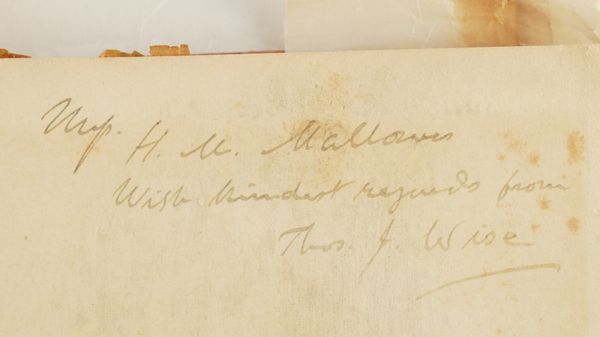 H. M. Mallows
With kindest regards from
Thos. J. Wise